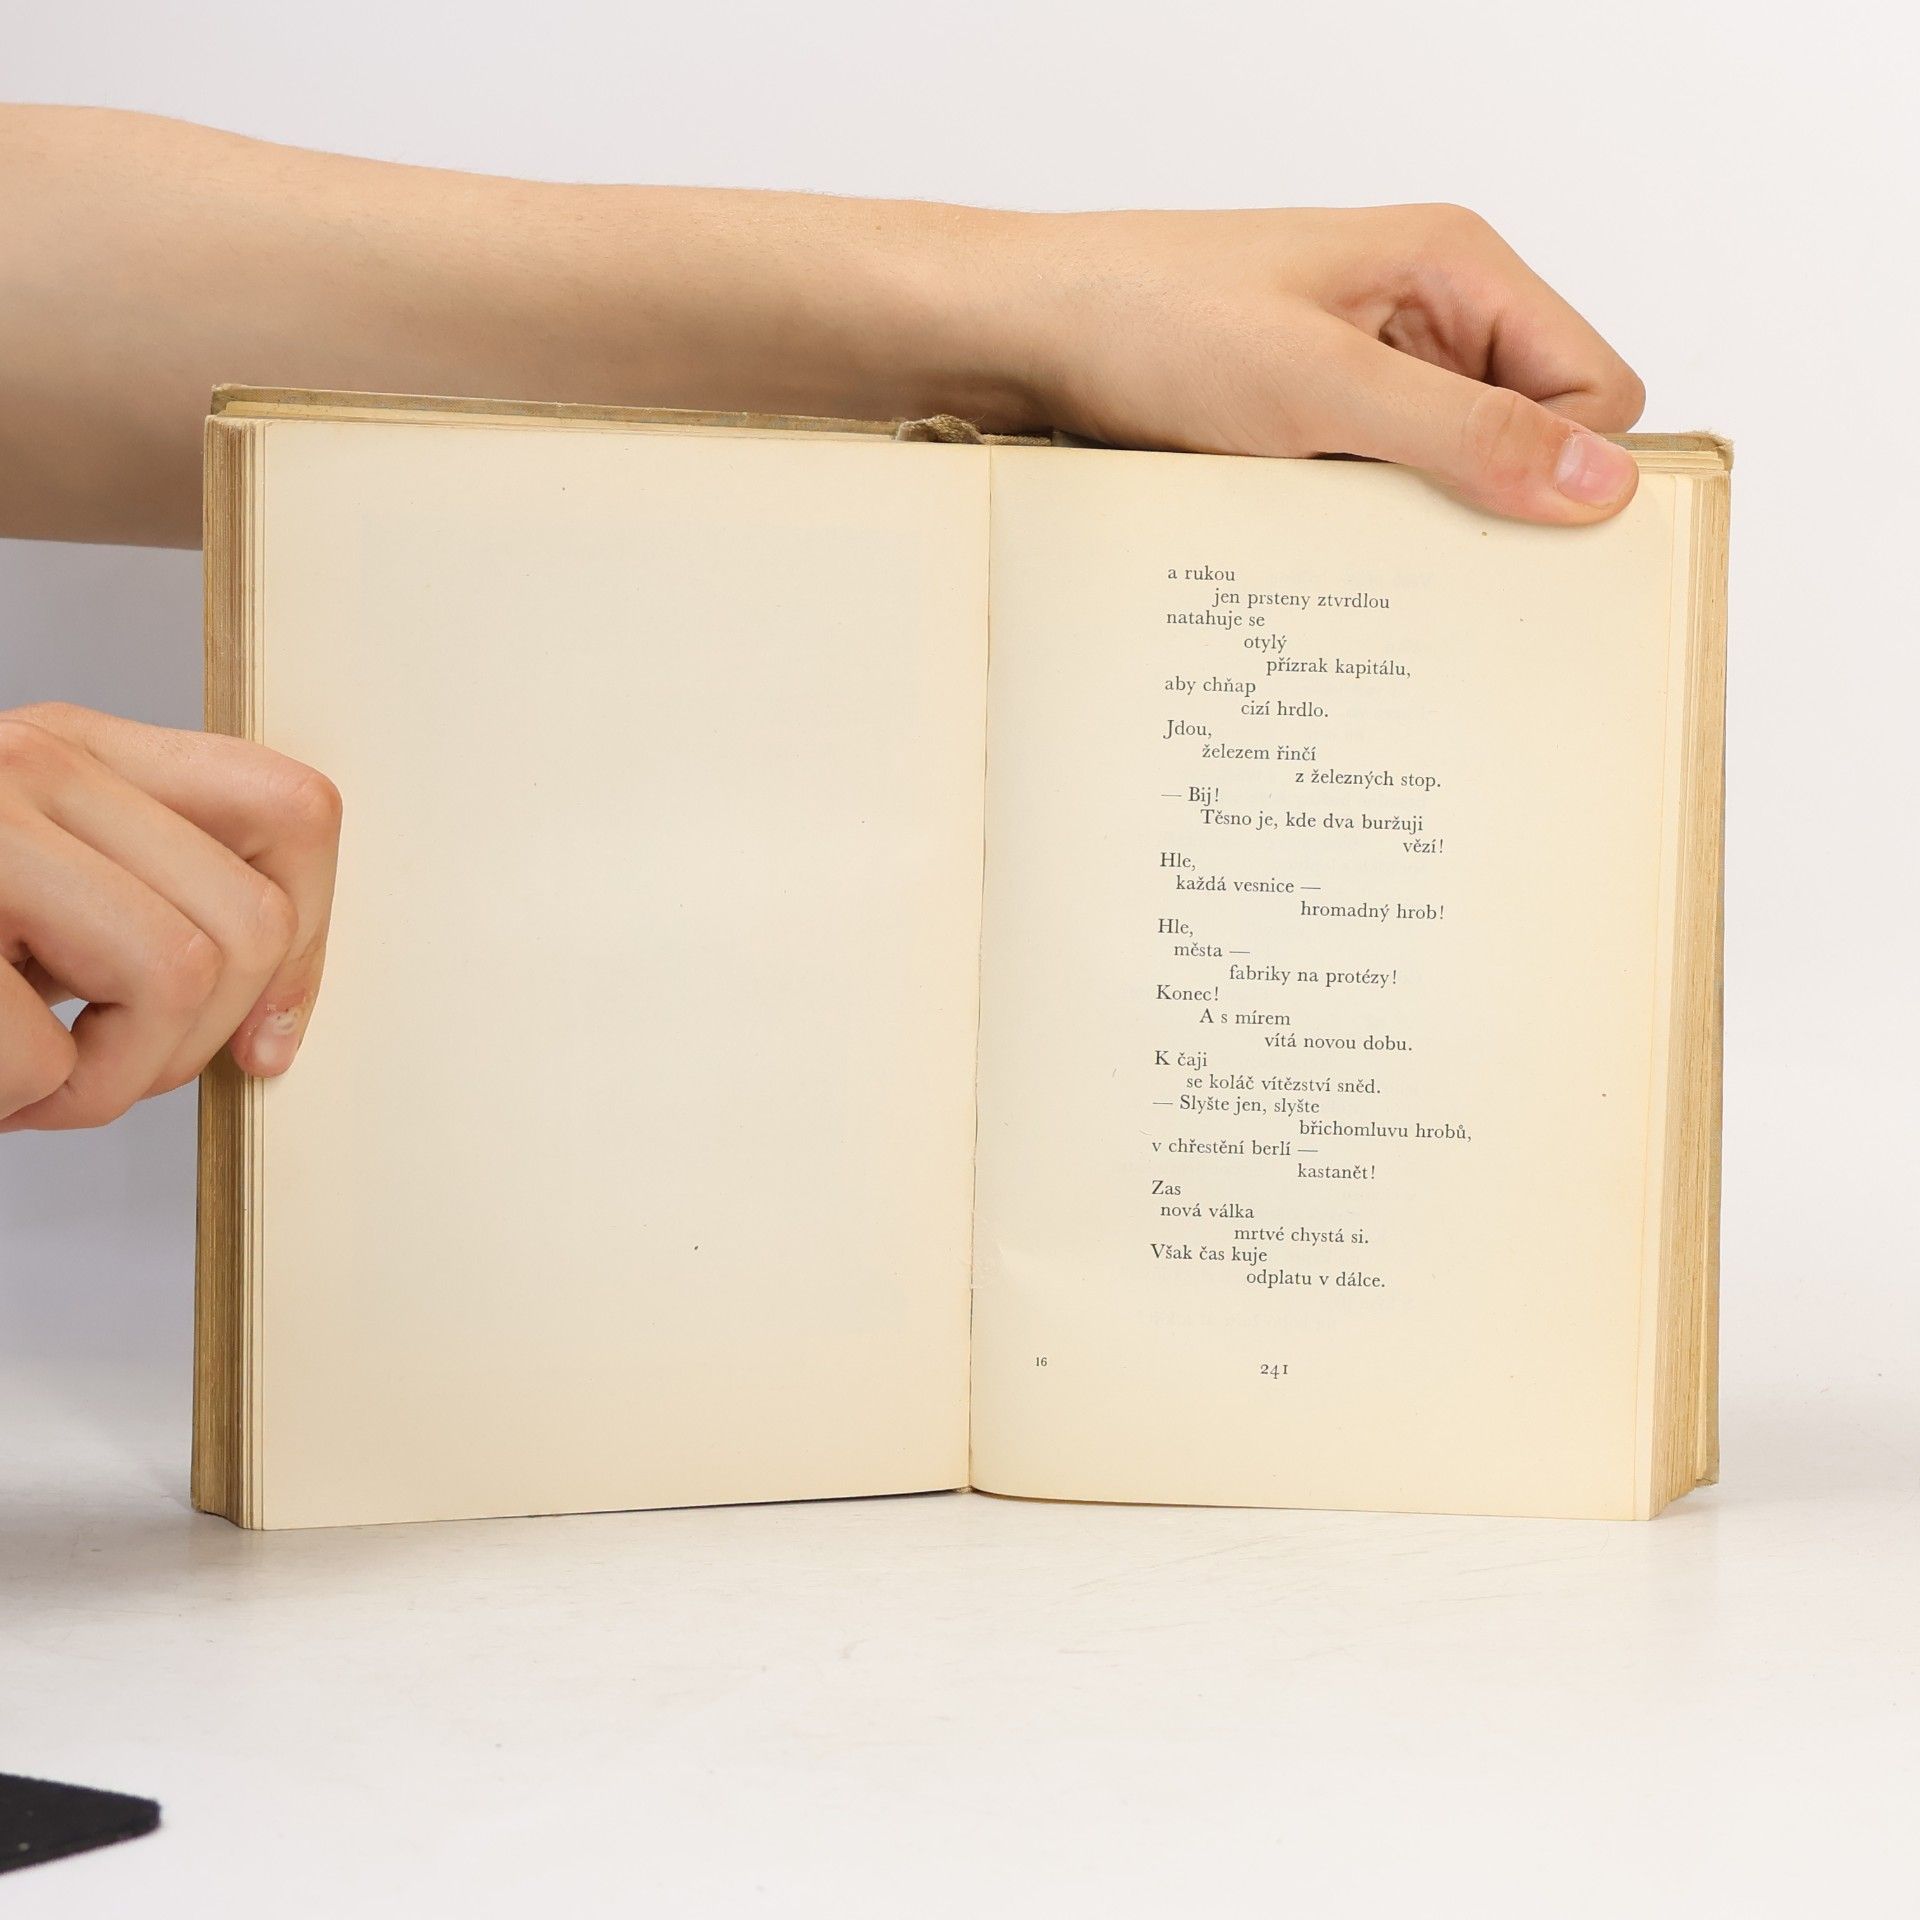 a rukou
jen prsteny ztvrdlou
natahuje se
otylý
přízrak kapitálu,
aby chňap
cizí hrdlo.
Jdou,
železem řinčí
z železných stop.
— Bij!
Těsno je, kde dva buržuji
vězí!
Hle,
každá vesnice —
hromadný hrob!
Hle,
města —
fabriky na protézy!
Konec!
A s mírem
vítá novou dobu.
K čaji
se koláč vítězství sněd.
— Slyšte jen, slyšte
břichomluvu hrobů,
v chřestění berlí —
kastanět!
Zas
nová válka
mrtvé chystá si.
Však čas kuje
odplatu v dálce.
16
241